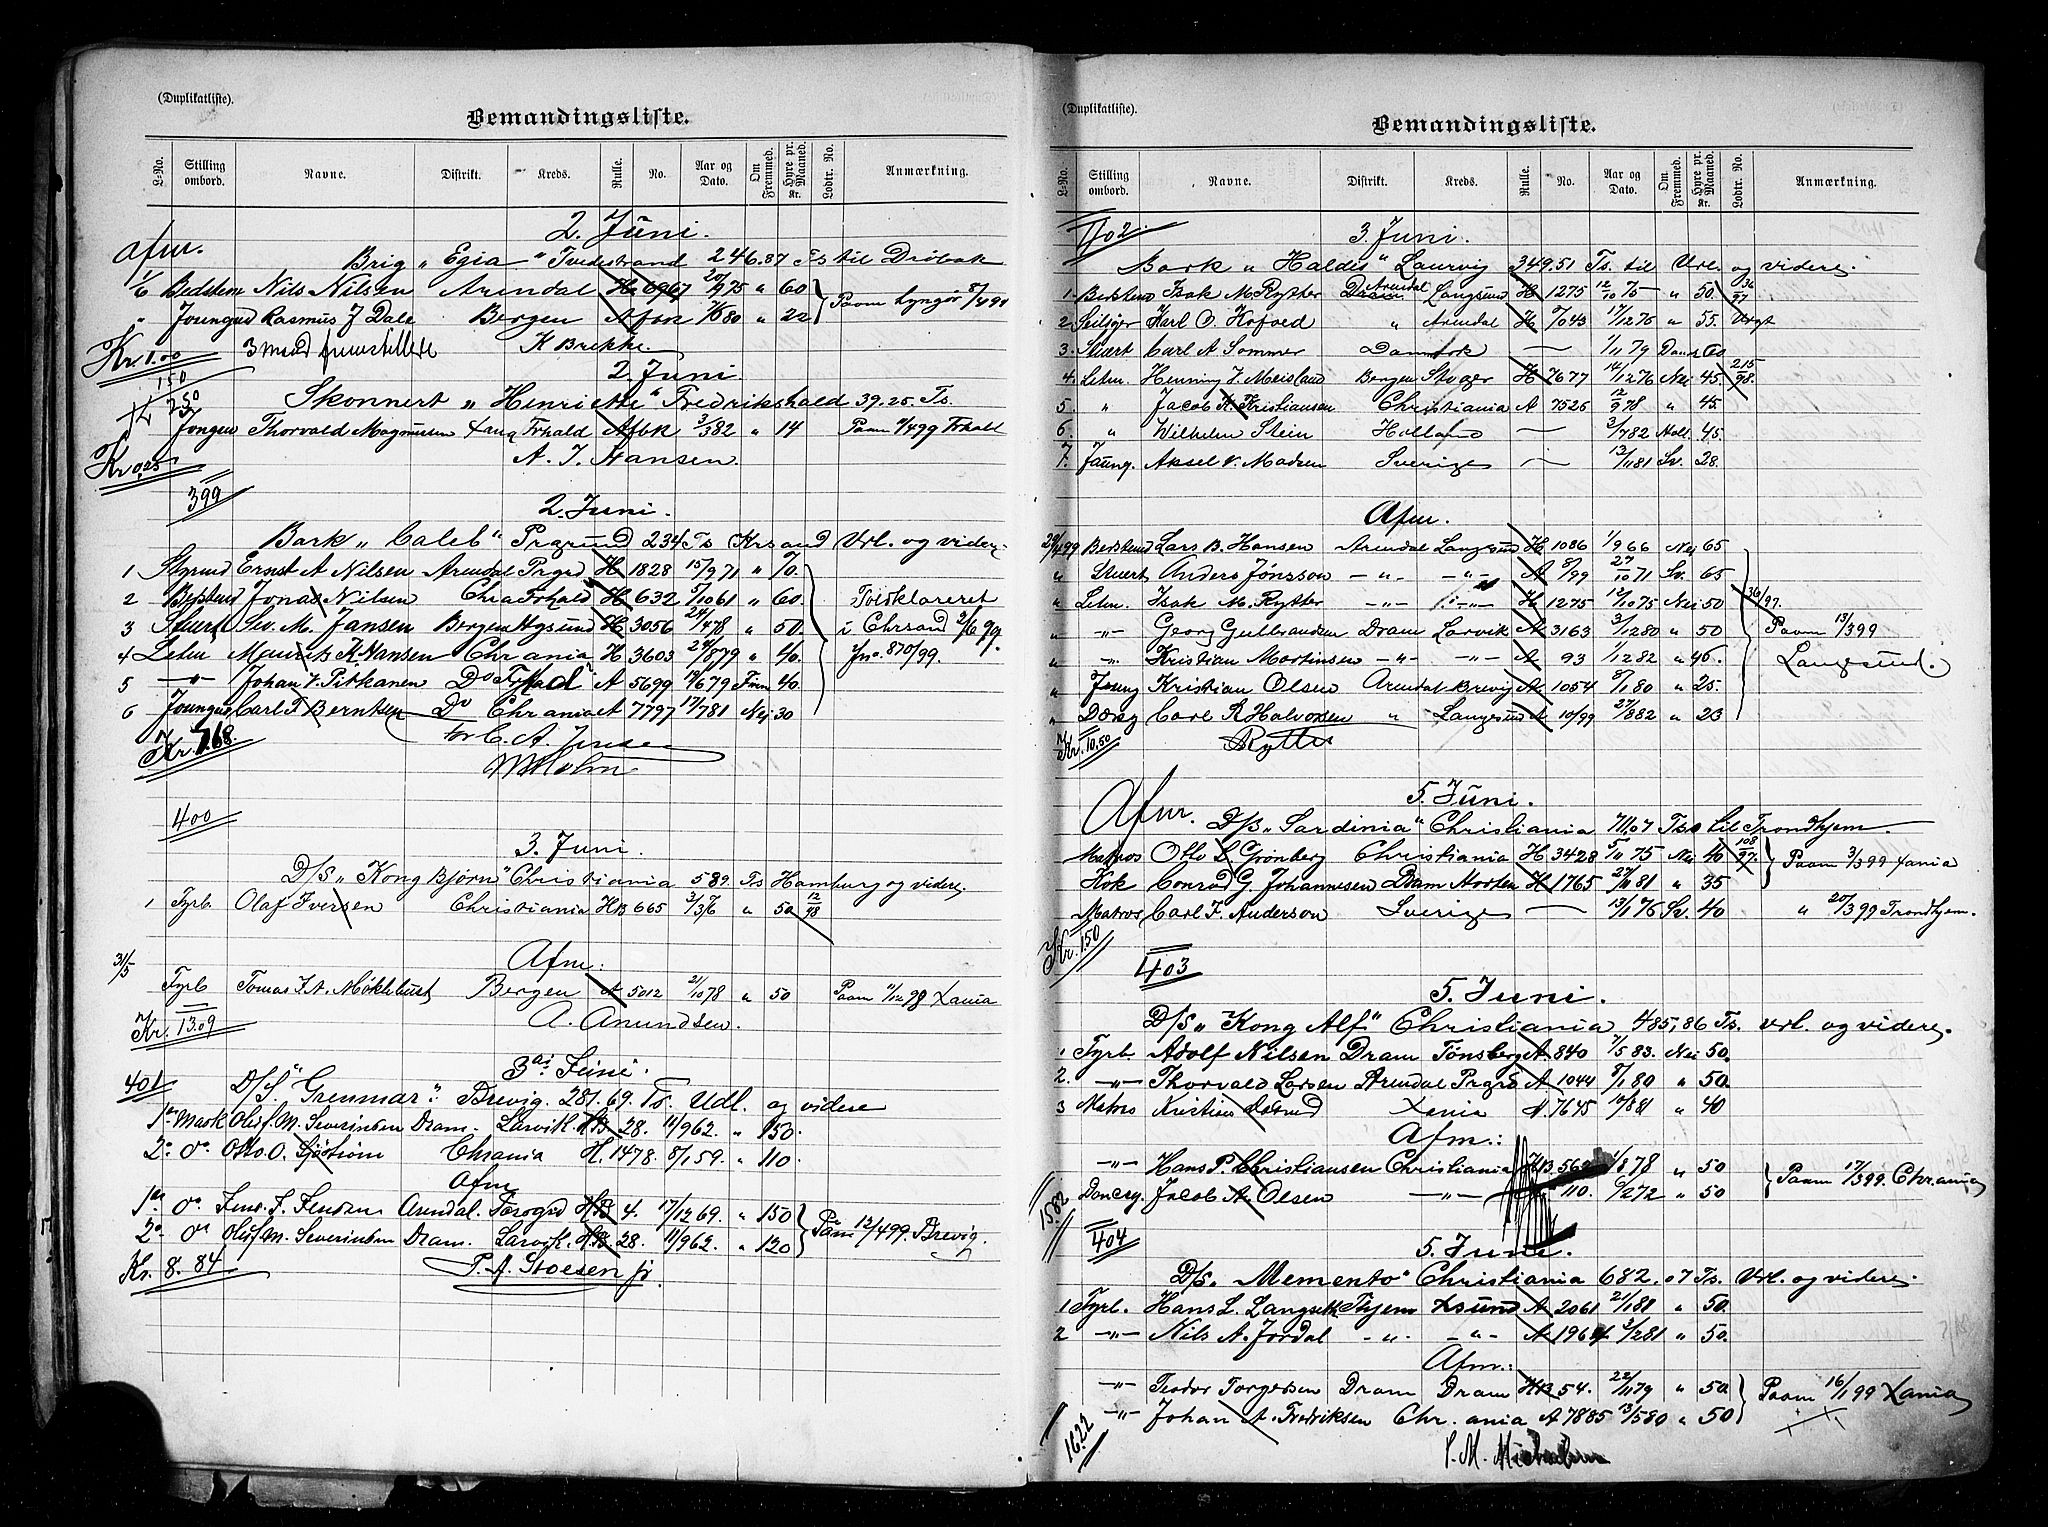 (Duplikatliste).
Bemandingsliste.
L-No. Stilling ombord. Navne. Distrikt. Kreds. Rulle. No. Aar og Dato. Om Fremmed. Hyre pr. Maaned. Kr. Lodtr. No. Anmærkning.
2. Juni.
Afm.
Brig „Egia" Tvedestrand 246.87 Ts til Drøbak
1/6 Bedstem Nils Nilsen Arendal H 6967 20/9 75 „ 60
„ Joungmd Rasmus J Dale Bergen A fbk 80 „ 22 Paam Lyngør 8/4 99
Kr 1.00 3 mand K Brekke.
150
2. Juni.
250
Skonnert „Henriette" Fredrikshald 39.25 Ts.
Jongm Thorvald Magnussen Xania Frhald A fbk 3/3 82 „ 14 Paam 4/4 99 Frhald
Kr 0.25 A. J. Hansen.
399
2. Juni.
Bark „Caleb" Prgrund 234 Ts Krsand Url. og videre.
1 Styrmd Ernst A Nilsen Arendal Prgrd H 1828 15/9 71 „ 70.
2 Bedstmd Jonas Nilsen Chra Frhald H 632 5/10 61 „ 60. Toldklareret
3 Stuert Sv. M. Jansen Bergen Hgsund H 3056 24/4 78 „ 50. i Chrsand 2/6 99.
4 Letm Mauritz K. Hansen Chrania H 3603 24/8 79 „ 40. Jno. 870/99.
5 —„— Johan V. Pitkanen Do Frhald A 5699 17/6 79 Finn 40.
6 Joungm Carl F. Berntsen Do Chrania A 7797 17/7 81 Nei 30
Kr. 7.68. for C. A. Jensen
M Holm
400
3. Juni.
D/S „Kong Bjørn" Christiania 589 Ts Hamburg og videre.
1 Fyrb Olaf Iversen Christiania HB 665 2/3 76 „ 50 12/98
31/5 Afm:
Fyrb Tomas J. A. Møklebust Bergen A 5012 21/10 78 „ 50 Paam 11/12 98 Xania
Kr. 13.09 A. Amundsen.
3die Juni.
401 D/S. „Grenmar". Brevig. 281.69. Ts. Udl. og videre
1ste Mask Oluf M. Severinsen Dram. Larvik. HB 28. 11/9 62. „ 150.
2. do. Otto O. Sjøstrøm Chrania H. 1478. 8/1 59. „ 110.
Afm
1ste do Jens. J. Jensen Arendal. Porsgrd HB 4. 17/12 69. „ 150
2. do Oluf M. Severinsen Dram. Larvik. HB 28. 11/9 62. „ 120 Paam 12/4 99. Brevig.
Kr. 8.84 P. A. Stoesen jr
(Duplikatliste).
Bemandingsliste.
L-No. Stilling ombord. Navne. Distrikt. Kreds. Rulle. No. Aar og Dato. Om Fremmed. Hyre pr. Maaned. Kr. Lodtr. No. Anmærkning.
402. 3. Juni.
Bark „Haldis" Laurvig 349.51 Ts. til Url. og videre.
1. Bedstmd Isak M. Rytter Dram Arendal Langsund H 1275 12/10 75 — „ 50. 36/97
2 Seilgjør Karl O. Kofoed „ Arendal H 7043 17/12 75 „ 55. Uvgt
3. Stuert Carl A Sommer Danmark — 1/11 79 Dansk 60
4. Letm. Henning J. Meisland Bergen Stvgør H 7677 14/12 76 Nei 45. 215/98.
5. „ Jacob K. Kristiansen Christiania A 7526 12/9 78 „ 45.
6. „ Wilhelm Stein Holland — 3/7 82 Holl. 45.
7. Joung. Aksel V. Madsen Sverige — 12/11 81 Sv. 28.
Afm.
29/4 99 Bedstmd Lars B. Hansen Arendal Langesund H 1086 1/9 66 Nei 65
„ Stuert Anders Jönsson —„— —„— A 8/99 27/10 71 Sv. 65
„ Letm. Isak M. Rytter —„— —„— H 1275 12/10 75 Nei 50 36/97.
„ —„— Georg Gulbrandsen Dram Larvik A 3163 3/12 80 „ 50 Paam 13/3 99
„ —„— Kristian Martinsen —„— —„— A 93 1/12 82 „ 46. Langesund.
„ Joung Kristian Olsen Arendal Brevig A 1054 8/1 80 „ 25.
„ Dæksg Carl R Halvorsen „ Langesund A 10/99 27/8 82 „ 23
Kr. 10.50 Rytter
Afm. 5. Juni.
D/S „Sardinia" Christiania 711.07 Ts til Trondhjem.
Matros Otto L. Grønberg Christiania H 3428 5/11 75 Nei 40 108/97. Paam 3/3 99 Xania
Kok Conrad G. Johannesen Dram Horten H 1765 27/11 81 „ 35
Matros Carl F. Anderson Sverige — 13/1 76 Sv. 40 „ 20/3 99 Trondhjem.
Kr. 1.50
403
5. Juni.
D/S „Kong Alf" Christiania 485,86 Ts. Url. og videre.
1 Fyrb. Adolf Nilsen Dram Tønsberg A 840 7/5 83. Nei 50.
2. —„— Thorvald Larsen Arendal Prgrd A 1044 8/1 80 „ 50.
3 Matros Kristian Xania A 7645 14/8 81 „ 40
Afm.:
—„— Hans P. Christiansen Christiania HB 562 1/8 78 „ 50
Donkey. Jacob A. Olsen —„— 110. 6/2 72 „ 50 Paam 17/3 99. Chrania
15.82
404 5. Juni.
D/S. „Memento" Christiania 682.07 Ts. Url. og videre.
1 Fyrb. Hans L. Langseth Thjem Xsund A 2061 21/1 81 „ 50.
2 —„— Nils A. Jordal —„— —„— A 1964 2/2 81 „ 50.
Afm.:
—„— Teodor Torgersen Dram Dram HB 54. 22/11 79 „ 50. Paam 16/1 99 Xania
—„— Johan A. Fredriksen Chr.ania A 7885 13/5 80 „ 50
16.22